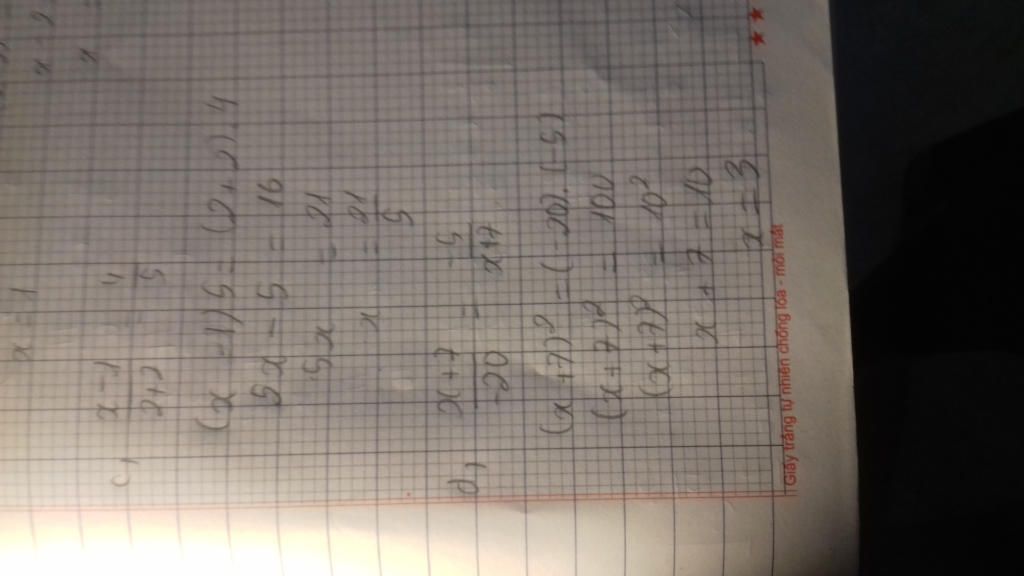 x = 1
x = 2
x =
c, (x-1)/(2+2) = 4/5
(x-1)5 = (2+2).4
5x - 5 = 16
5x = 21
x = 21/5
d, (x+7)/-20 = -5/(x+7)
(x+7)² = (-20).(-5)
(x+7)² = 100
(x+7)² = 10²
x+7 = 10
x = 3
Giấy trắng tự nhiên chống lóa - mỏi mắt